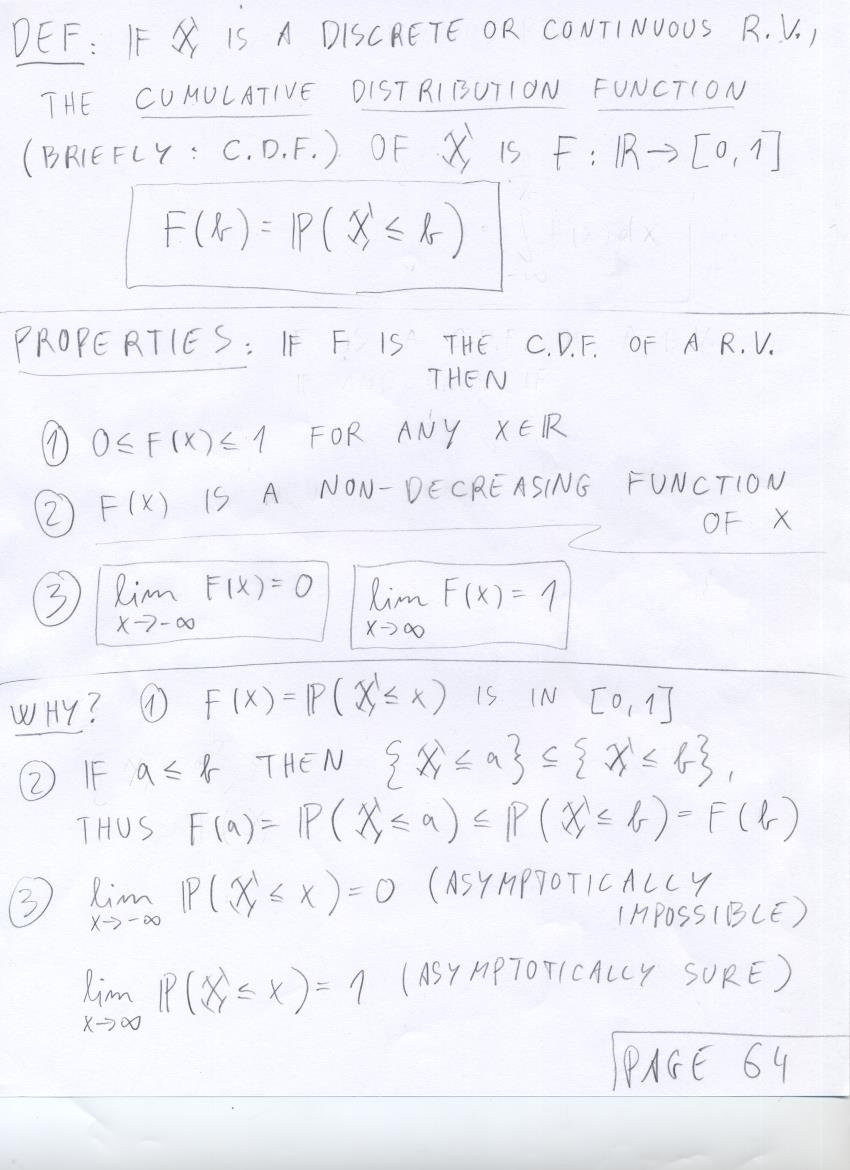 DEF: IF X IS A DISCRETE OR CONTINUOUS R.V.,
THE CUMULATIVE DISTRIBUTION FUNCTION
(BRIEFLY: C.D.F.) OF X IS F: ℝ→[0,1]
F(b) = ℙ(X ≤ b)
PROPERTIES: IF F IS THE C.D.F. OF A R.V.
THEN
① 0 ≤ F(x) ≤ 1 FOR ANY x∈ℝ
② F(x) IS A NON-DECREASING FUNCTION
OF X
③ lim F(x) = 0 lim F(x) = 1
x→-∞ x→∞
WHY? ① F(x) = ℙ(X ≤ x) IS IN [0,1]
② IF a ≤ b THEN {X ≤ a} ⊆ {X ≤ b},
THUS F(a) = ℙ(X ≤ a) ≤ ℙ(X ≤ b) = F(b)
③ lim ℙ(X ≤ x) = 0 (ASYMPTOTICALLY
x→-∞ IMPOSSIBLE)
lim ℙ(X ≤ x) = 1 (ASYMPTOTICALLY SURE)
x→∞
PAGE 64